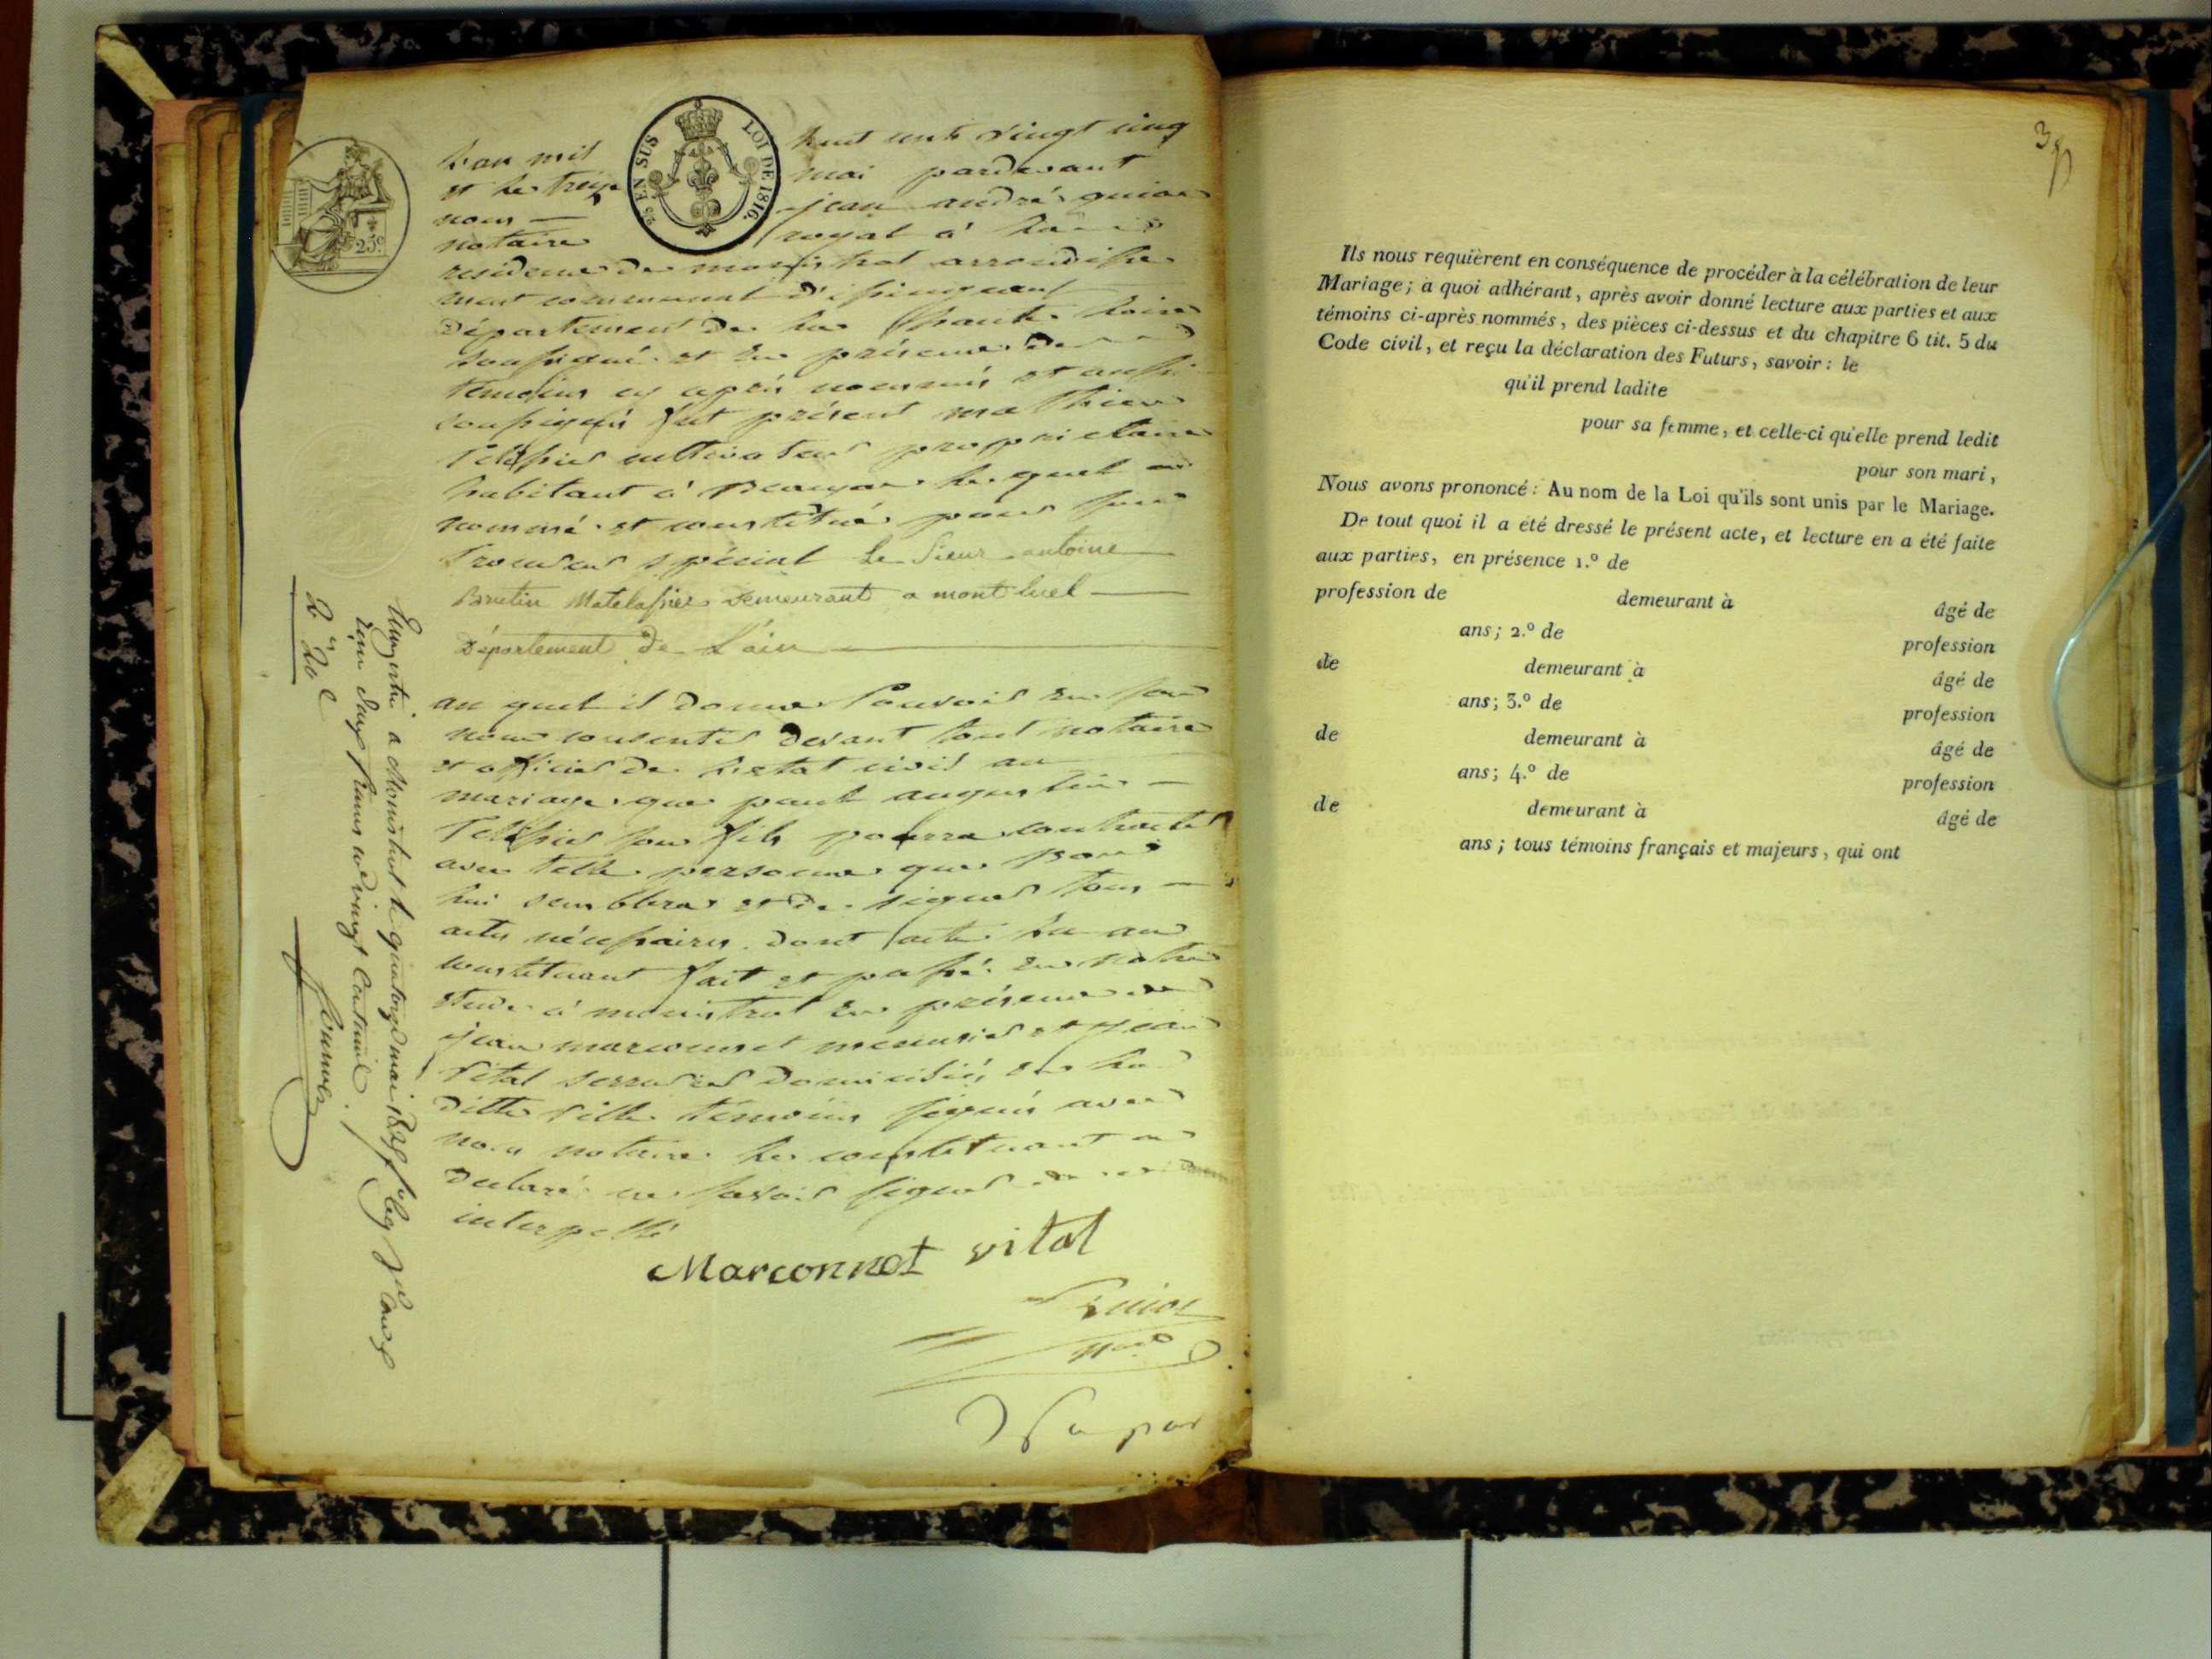 25.c
25 EN SUS
LOI DE 1816.
L'an mil huit cents vingt cinq
et le treize mai pardevant
nous — jean andré guior
notaire royal à la
residence de monistrol arrondisse
ment communal d'issingeaux
département de la haute loire
soussigné et en présence de
temoins cy après nommés et aussi
soussignés fut présent mathieu
cultivateur propriétaire
habitant à Beauzac lequel a
nommé et constitué pour son
Procureur spécial Le Sieur antoine
Brutin Matelassier demeurant a montluel
Département de L'ain
au quel il donne Pouvoir en son
nom consentir devant tout notaire
et officier de l'etat civil au
mariage que paul augustin
son fils pourra contracter
avec telle personne que bon
lui semblera et de signer tous
actes nécessaires. dont acte lu au
constituant fait et passé en notre
etude à monistrol en présence de
jean marconnet menuisier et jean
Vital serrurier domiciliés en la
ditte ville témoins signés avec
nous notaire le constituant a
declaré ne savoir signer de ce
interpellé
Marconnet vital
Guior
Nre
Ne par
Enregistré à Monistrol le quatorze mai 1825 fo
reçu deux francs vingt centimes.
2 fr 20 c
3
Ils nous requièrent en conséquence de procéder à la célébration de leur
Mariage; à quoi adhérant, après avoir donné lecture aux parties et aux
témoins ci-après nommés, des pièces ci-dessus et du chapitre 6 tit. 5 du
Code civil, et reçu la déclaration des Futurs, savoir: le
qu'il prend ladite
pour sa femme, et celle-ci qu'elle prend ledit
pour son mari,
Nous avons prononcé: Au nom de la Loi qu'ils sont unis par le Mariage.
De tout quoi il a été dressé le présent acte, et lecture en a été faite
aux parties, en présence 1.º de
profession de demeurant à âgé de
ans; 2.º de profession
de demeurant à âgé de
ans; 3.º de profession
de demeurant à âgé de
ans; 4.º de profession
de demeurant à âgé de
ans; tous témoins français et majeurs, qui ont